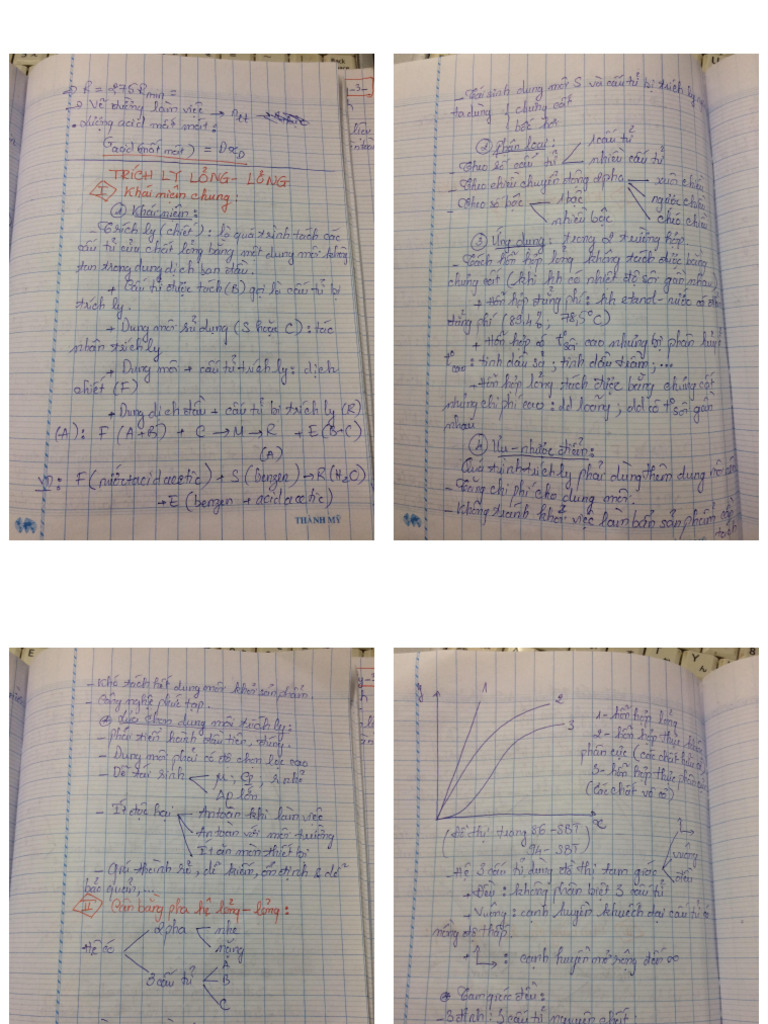 → R = 2,75 Rmin =
→ Vẽ đường làm việc → Ntt
• Lượng acid mất mát:
Gacid(mất mát) = DxD
TRÍCH LY LỎNG - LỎNG
I Khái niệm chung:
① Khái niệm:
- Trích ly (chiết): là quá trình tách các
cấu tử của chất lỏng bằng một dung môi không
tan trong dung dịch ban đầu.
+ Cấu tử được tách (B) gọi là cấu tử bị
trích ly.
+ Dung môi sử dụng (S hoặc C): tác
nhân trích ly
+ Dung môi + cấu tử trích ly: dịch
chiết (F)
+ Dung dịch đầu + cấu tử bị trích ly (R)
(A): F (A+B) + C → M → R + E (B+C)
(A)
VD: F (nước+acid acetic) + S (benzen) → R (H2O)
+ E (benzen + acid acetic)
THÀNH MỸ
- Tái sinh dung môi S và cấu tử bị trích ly
ta dùng chưng cất
bốc hơi
② Phân loại:
- Theo số cấu tử 1 cấu tử
nhiều cấu tử
- Theo chiều chuyển động 2 pha xuôi chiều
ngược chiều
chéo chiều
- Theo số bậc 1 bậc
nhiều bậc
③ Ứng dụng: trong 2 trường hợp
- Tách hỗn hợp lỏng không tách được bằng
chưng cất (khi hh có nhiệt độ sôi gần nhau)
+ Hỗn hợp đẳng phí: hh etanol - nước có
đẳng phí (89,4%, 78,5°C)
+ Hỗn hợp có t°sôi cao nhưng bị phân hủy
t°cao: tinh dầu sả, tinh dầu tràm, ...
+ Hỗn hợp lỏng tách được bằng chưng cất
nhưng chi phí cao: dd loãng, dd có t°sôi gần
nhau
④ Ưu - nhược điểm:
Quá trình trích ly phải dùng thêm dung môi
- Tăng chi phí cho dung môi.
- Không tránh khỏi việc làm bẩn sản phẩm cần
tách
- Khó tách hết dung môi khỏi sản phẩm.
- Công nghệ phức tạp.
⊛ Lựa chọn dung môi trích ly:
- phải tiến hành đầu tiên, đúng.
- Dung môi phải có độ chọn lọc cao
- Dễ tái sinh μ, Cp, r nhỏ
Áp lớn
- Ít độc hại An toàn khi làm việc
An toàn với môi trường
Ít ăn mòn thiết bị
- Giá thành rẻ, dễ kiếm, ổn định & dễ
bảo quản, ...
II Cân bằng pha hệ lỏng - lỏng:
Hệ có 2 pha nhẹ
nặng
3 cấu tử A
B
C
y 1 2 3
1 - hỗn hợp lỏng
2 - hỗn hợp thực không
phân cực (các chất hữu cơ)
3 - hỗn hợp thực phân cực
(các chất vô cơ)
x
(Đồ thị trang 86 - SBT
94 - SBT)
- Hệ 3 cấu tử dùng đồ thị tam giác vuông
đều
+ Đều: không phân biệt 3 cấu tử
+ Vuông: cạnh huyền khuếch đại cấu tử có
nồng độ thấp.
+ : cạnh huyền mở rộng đến ∞
⊛ Tam giác đều:
- 3 đỉnh: 3 cấu tử nguyên chất: